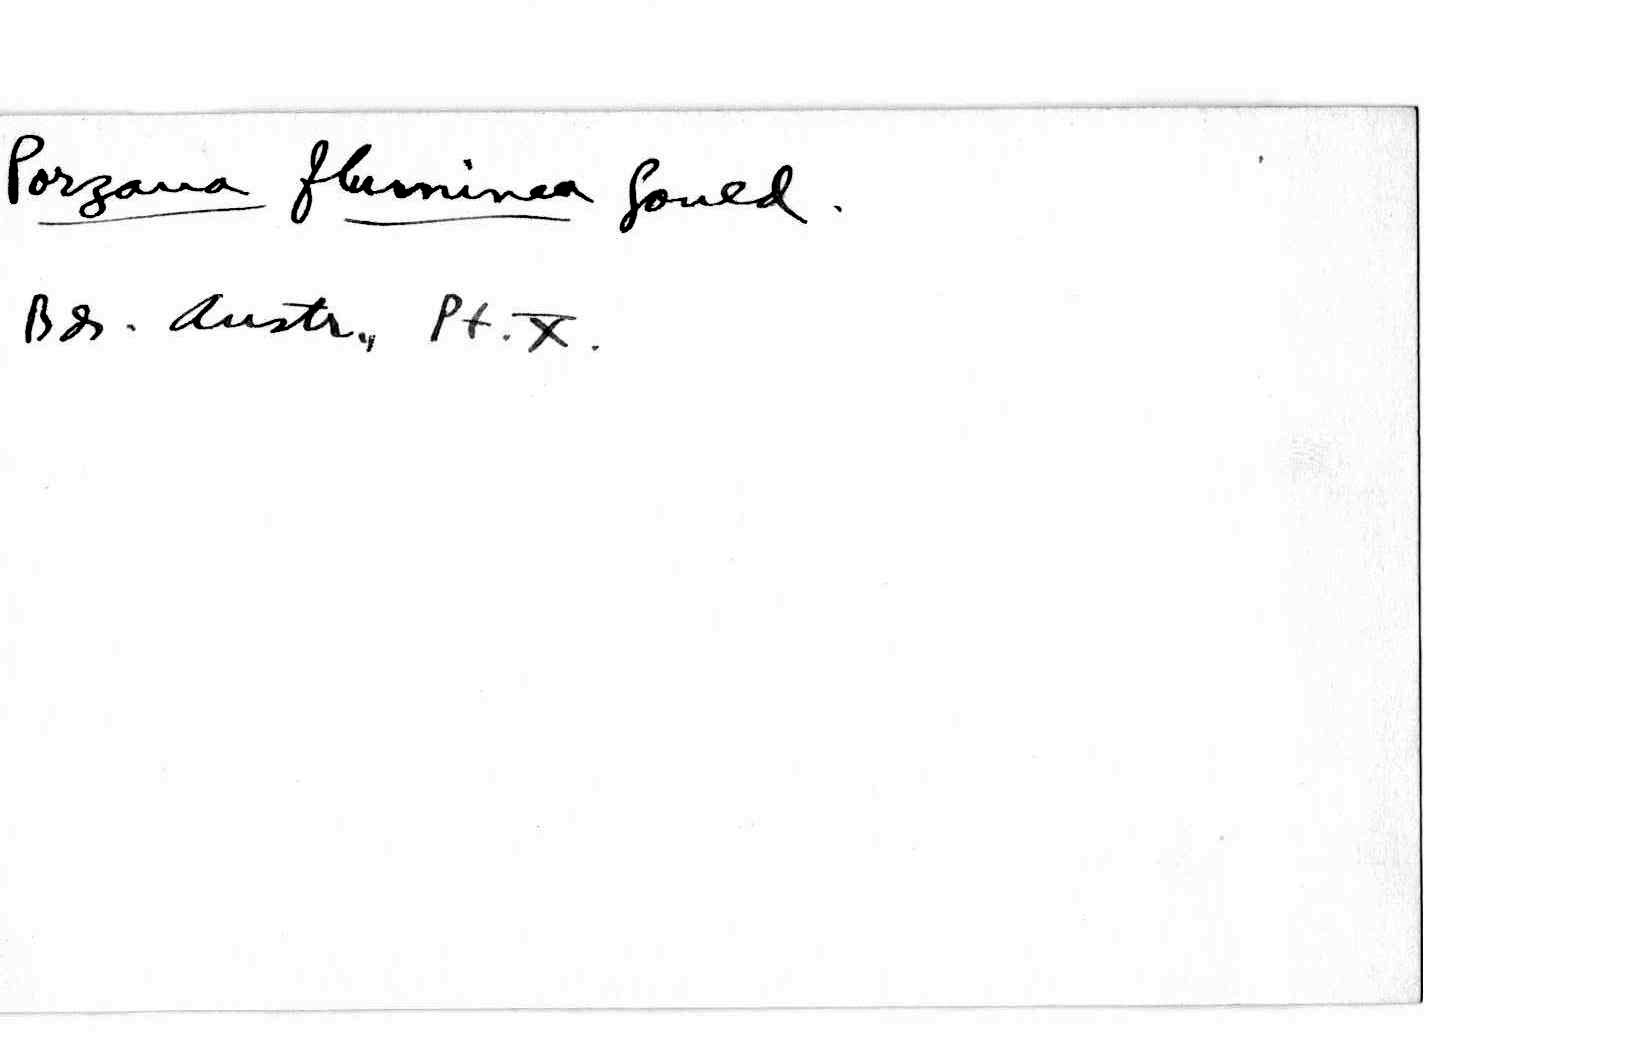 Porzana fluminea Gould.
Bds. Austr., Pt. X.